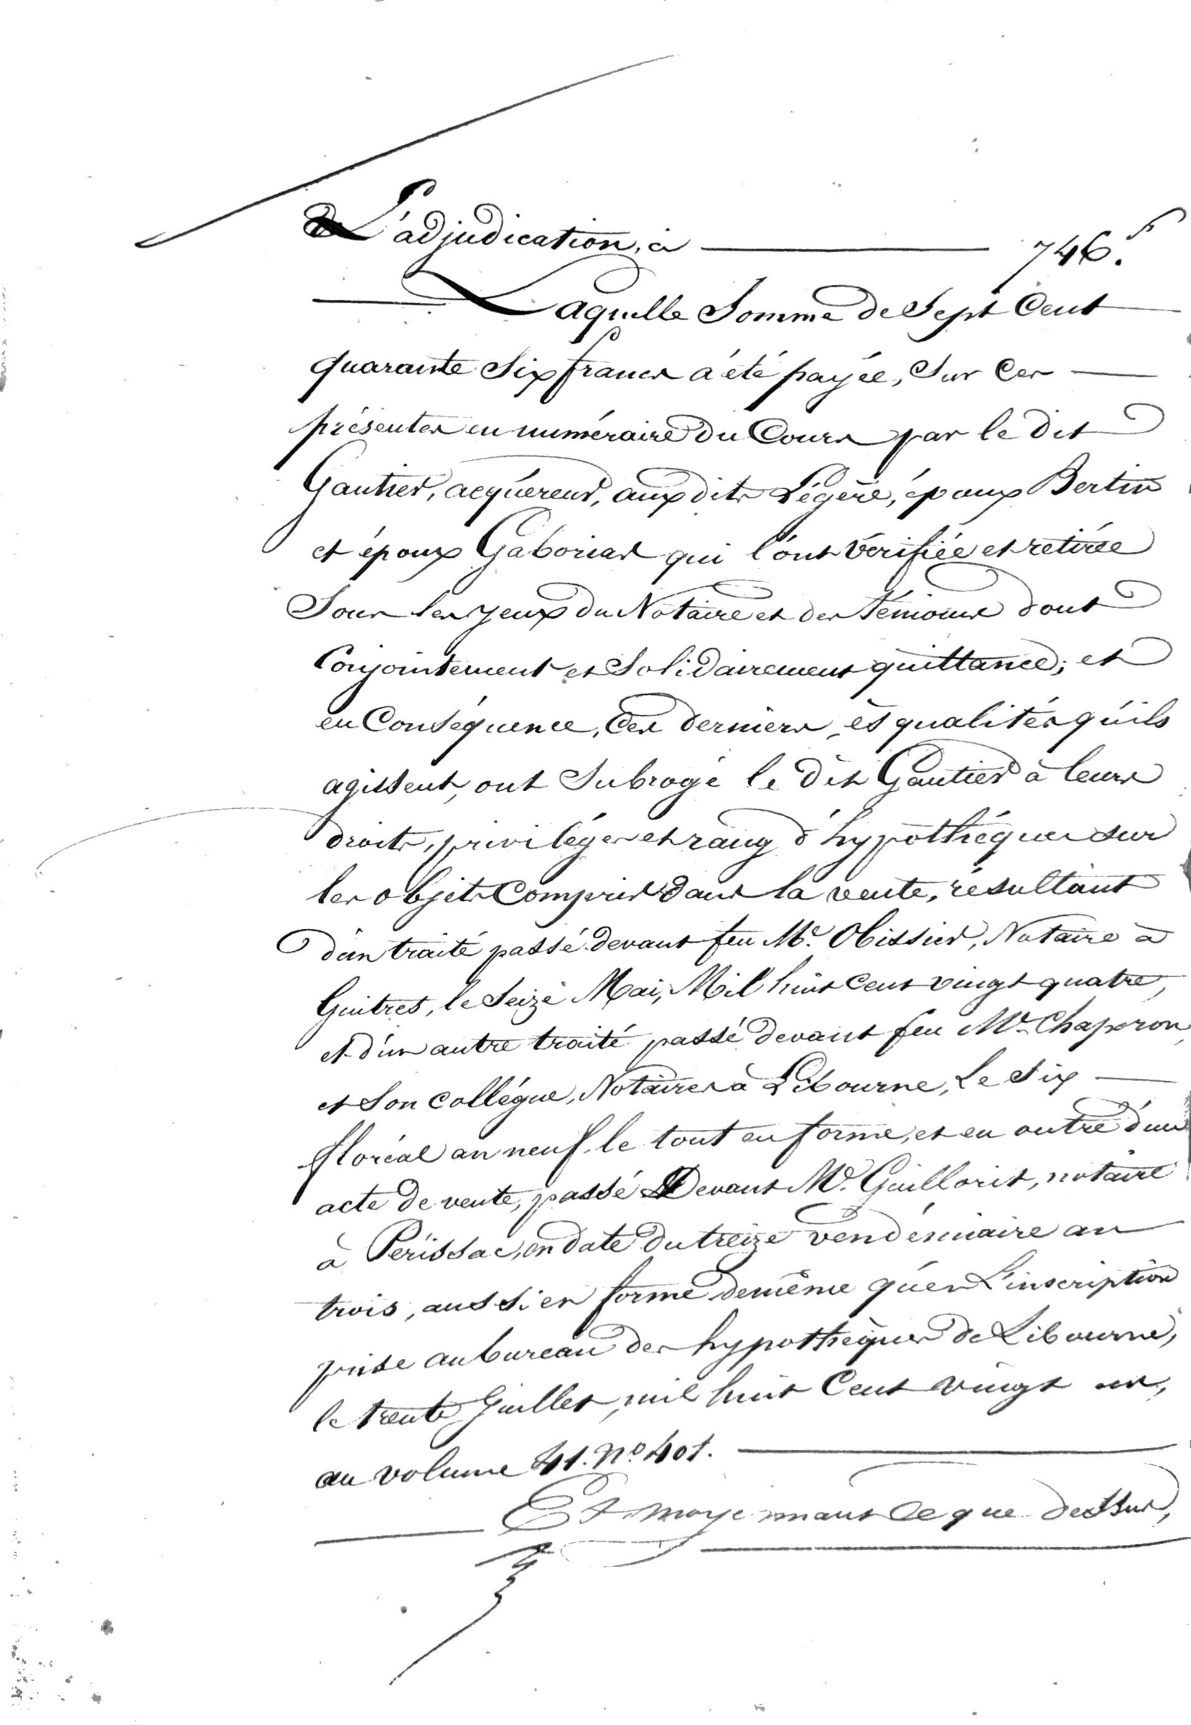 L'adjudication, à 746.f
Laquelle Somme de Sept Cent
quarante Six francs a été payée, Sur Ces
présentes en numéraire du Cours par le dit
Gautier, acquéreur, aux dits Légère, époux Bertin
et époux Gaboriau qui l'ont vérifiée et retirée
Sous les yeux du Notaire et des témoins dont
Conjointement et Solidairement quittance; et
en Conséquence, Ces derniers, ès qualités qu'ils
agissent, ont Subrogé le dit Gautier à leurs
droits, privilèges et rang d'hypothéques sur
les objets Compris dans la vente, résultant
d'un traité passé devant feu Me. Obissier, Notaire à
Guitres, le Seize Mai, Mil huit Cent vingt quatre,
et d'un autre traité passé devant feu Me. Chaperon
et Son collégue, Notaires à Libourne, Le Six
floréal an neuf le tout en forme, et en outre d'un
acte de vente, passé Devant Me. Guillorit, notaire
à Périssac, en date du treize vendémiaire an
trois, aussi en forme demême qu'en L'inscription
prise au bureau des hypothèques de Libourne,
le trente Juillet, mil huit Cent vingt un,
au volume 41. No. 401.
Et moyennant Ce que dessus,